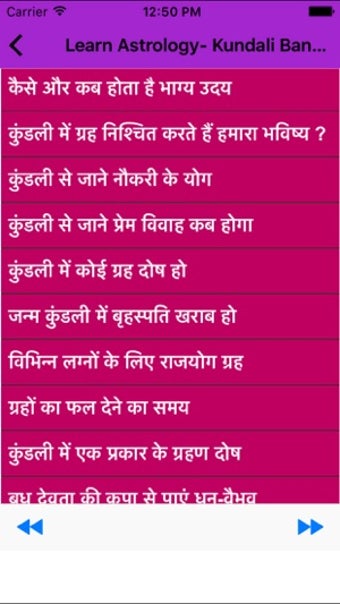 Carrier 12:50 PM
Learn Astrology- Kundali Ban...
कैसे और कब होता है भाग्य उदय
कुंडली में ग्रह निश्चित करते हैं हमारा भविष्य ?
कुंडली से जाने नौकरी के योग
कुंडली से जाने प्रेम विवाह कब होगा
कुंडली में कोई ग्रह दोष हो
जन्म कुंडली में बृहस्पति खराब हो
विभिन्न लग्नों के लिए राजयोग ग्रह
ग्रहों का फल देने का समय
कुंडली में एक प्रकार के ग्रहण दोष
बुध देवता की कृपा से पाएं धन-वैभव